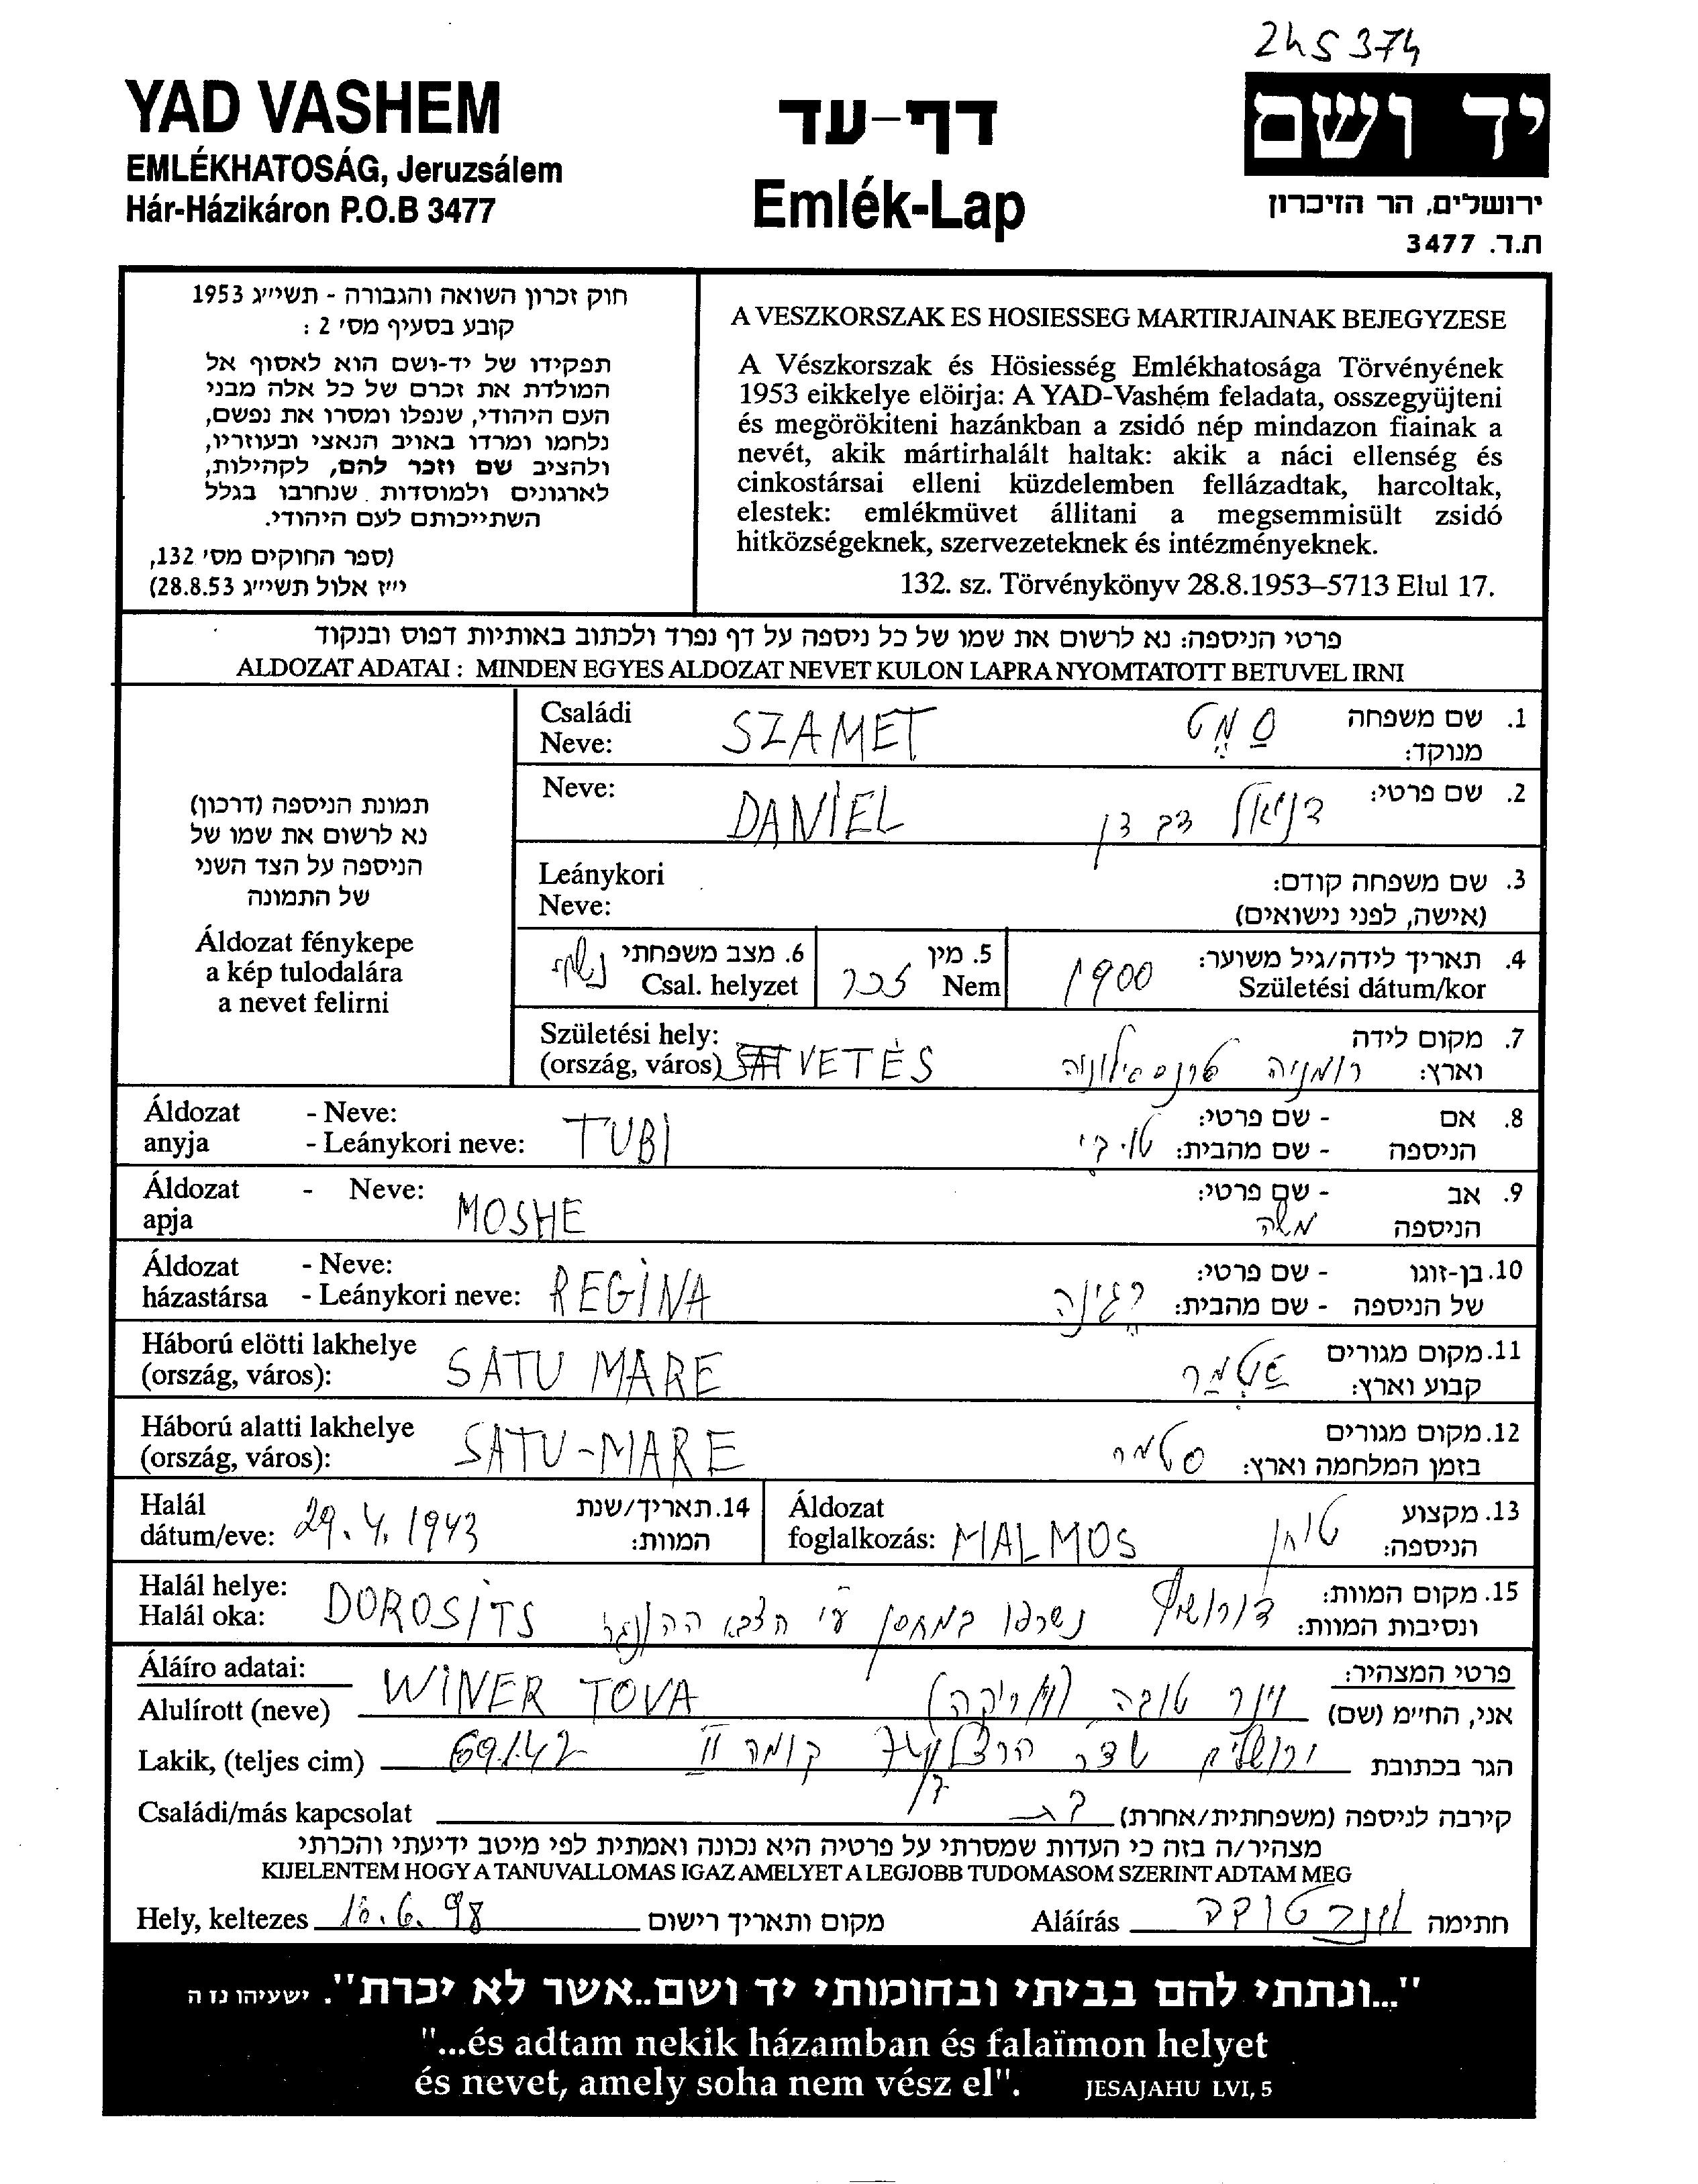 245374
YAD VASHEM
EMLÉKHATOSÁG, Jeruzsálem
Hár-Házikáron P.O.B 3477
דף-עד
Emlék-Lap
יד ושם
ירושלים, הר הזיכרון
ת.ד. 3477
חוק זכרון השואה והגבורה - תשי״ג 1953
קובע בסעיף מס׳ 2 :
תפקידו של יד-ושם הוא לאסוף אל
המולדת את זכרם של כל אלה מבני
העם היהודי, שנפלו ומסרו את נפשם,
נלחמו ומרדו באויב הנאצי ובעוזריו,
ולהציב שם וזכר להם, לקהילות,
לארגונים ולמוסדות שנחרבו בגלל
השתייכותם לעם היהודי.
(ספר החוקים מס׳ 132,
י״ז אלול תשי״ג 28.8.53)
A VESZKORSZAK ES HOSIESSEG MARTIRJAINAK BEJEGYZESE
A Vészkorszak és Hösiesség Emlékhatosága Törvényének
1953 eikkelye elöirja: A YAD-Vashém feladata, osszegyüjteni
és megörökiteni hazánkban a zsidó nép mindazon fiainak a
nevét, akik mártirhalált haltak: akik a náci ellenség és
cinkostársai elleni küzdelemben fellázadtak, harcoltak,
elestek: emlékmüvet állitani a megsemmisült zsidó
hitközségeknek, szervezeteknek és intézményeknek.
132. sz. Törvénykönyv 28.8.1953–5713 Elul 17.
פרטי הניספה: נא לרשום את שמו של כל ניספה על דף נפרד ולכתוב באותיות דפוס ובנקוד
ALDOZAT ADATAI : MINDEN EGYES ALDOZAT NEVET KULON LAPRA NYOMTATOTT BETUVEL IRNI
תמונת הניספה (דרכון)
נא לרשום את שמו של
הניספה על הצד השני
של התמונה
Áldozat fénykepe
a kép tulodalára
a nevet felirni
Családi Neve: SZAMET סַמֶט 1. שם משפחה מנוקד:
Neve: DANIEL דניאל דב דן 2. שם פרטי:
Leánykori Neve: 3. שם משפחה קודם: (אישה, לפני נישואים)
4. תאריך לידה/גיל משוער: Születési dátum/kor 1900
5. מין Nem זכר
6. מצב משפחתי Csal. helyzet נשוי
Születési hely: (ország, város) VETÉS רומניה טרנסילווניה 7. מקום לידה וארץ:
Áldozat anyja - Neve: - Leánykori neve: TUBI טובי 8. אם הניספה - שם פרטי: - שם מהבית:
Áldozat apja - Neve: MOSHE משה 9. אב הניספה - שם פרטי:
Áldozat házastársa - Neve: - Leánykori neve: REGINA רגינה 10. בן-זוגו של הניספה - שם פרטי: - שם מהבית:
Háború elötti lakhelye (ország, város): SATU MARE סטמר 11. מקום מגורים קבוע וארץ:
Háború alatti lakhelye (ország, város): SATU-MARE סטמר 12. מקום מגורים בזמן המלחמה וארץ:
Halál dátum/eve: 29.4.1943 14. תאריך/שנת המוות:
Áldozat foglalkozás: MALMOS טוחן 13. מקצוע הניספה:
Halál helye: Halál oka: DOROSITS דורושיץ נשרפו במחסן ע״י הצבא ההונגרי 15. מקום המוות: ונסיבות המוות:
Áláíro adatai: פרטי המצהיר:
Alulírott (neve) WINER TOVA וינר טובה אני, הח״מ (שם)
Lakik, (teljes cim) 69142 ירושלים שדר הרצל 74 קומה II הגר בכתובת
Családi/más kapcsolat בת קירבה לניספה (משפחתית/אחרת)
מצהיר/ה בזה כי העדות שמסרתי על פרטיה היא נכונה ואמתית לפי מיטב ידיעתי והכרתי
KIJELENTEM HOGY A TANUVALLOMAS IGAZ AMELYET A LEGJOBB TUDOMASOM SZERINT ADTAM MEG
Hely, keltezes 16.6.98 מקום ותאריך רישום Aláírás וינר טובה חתימה
"...ונתתי להם בביתי ובחומותי יד ושם..אשר לא יכרת". ישעיהו נז ה
"...és adtam nekik házamban és falaïmon helyet
és nevet, amely soha nem vész el". JESAJAHU LVI, 5